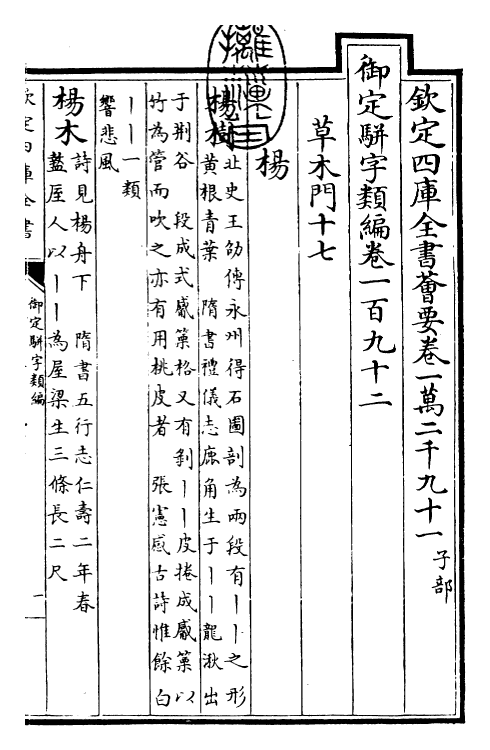 欽定四庫全書薈要卷一萬二千九十一 子部
御定駢字類編卷一百九十二
草木門十七
楊
楊樹
北史王劭傳永州得石圖剖為兩段有丨丨之形
黃根青葉 隋書禮儀志鹿角生于丨丨龍湫出
于荆谷 段成式觱篥格又有剝丨丨皮捲成觱篥以
竹為管而吹之亦有用桃皮者 張憲感古詩惟餘白
丨丨一類
響悲風
楊木
詩見楊舟下 隋書五行志仁壽二年春
盩厔人以丨丨為屋梁生三條長二尺
欽定四庫全書
御定駢字類編
一